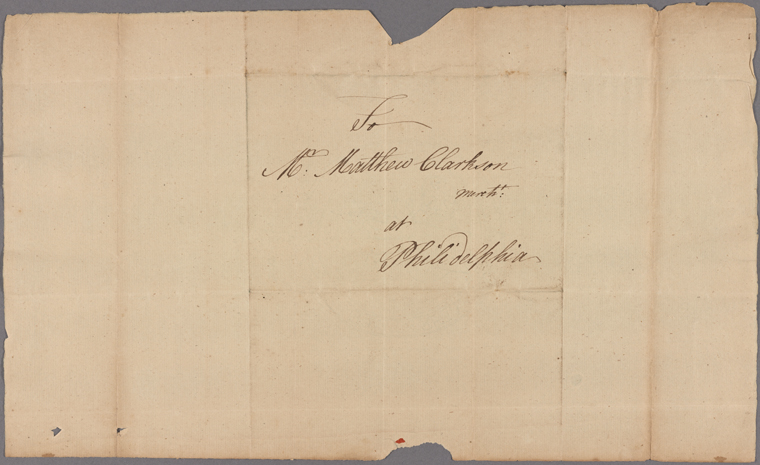 To
Mr. Matthew Clarkson
Mercht:
at
Philidelphia